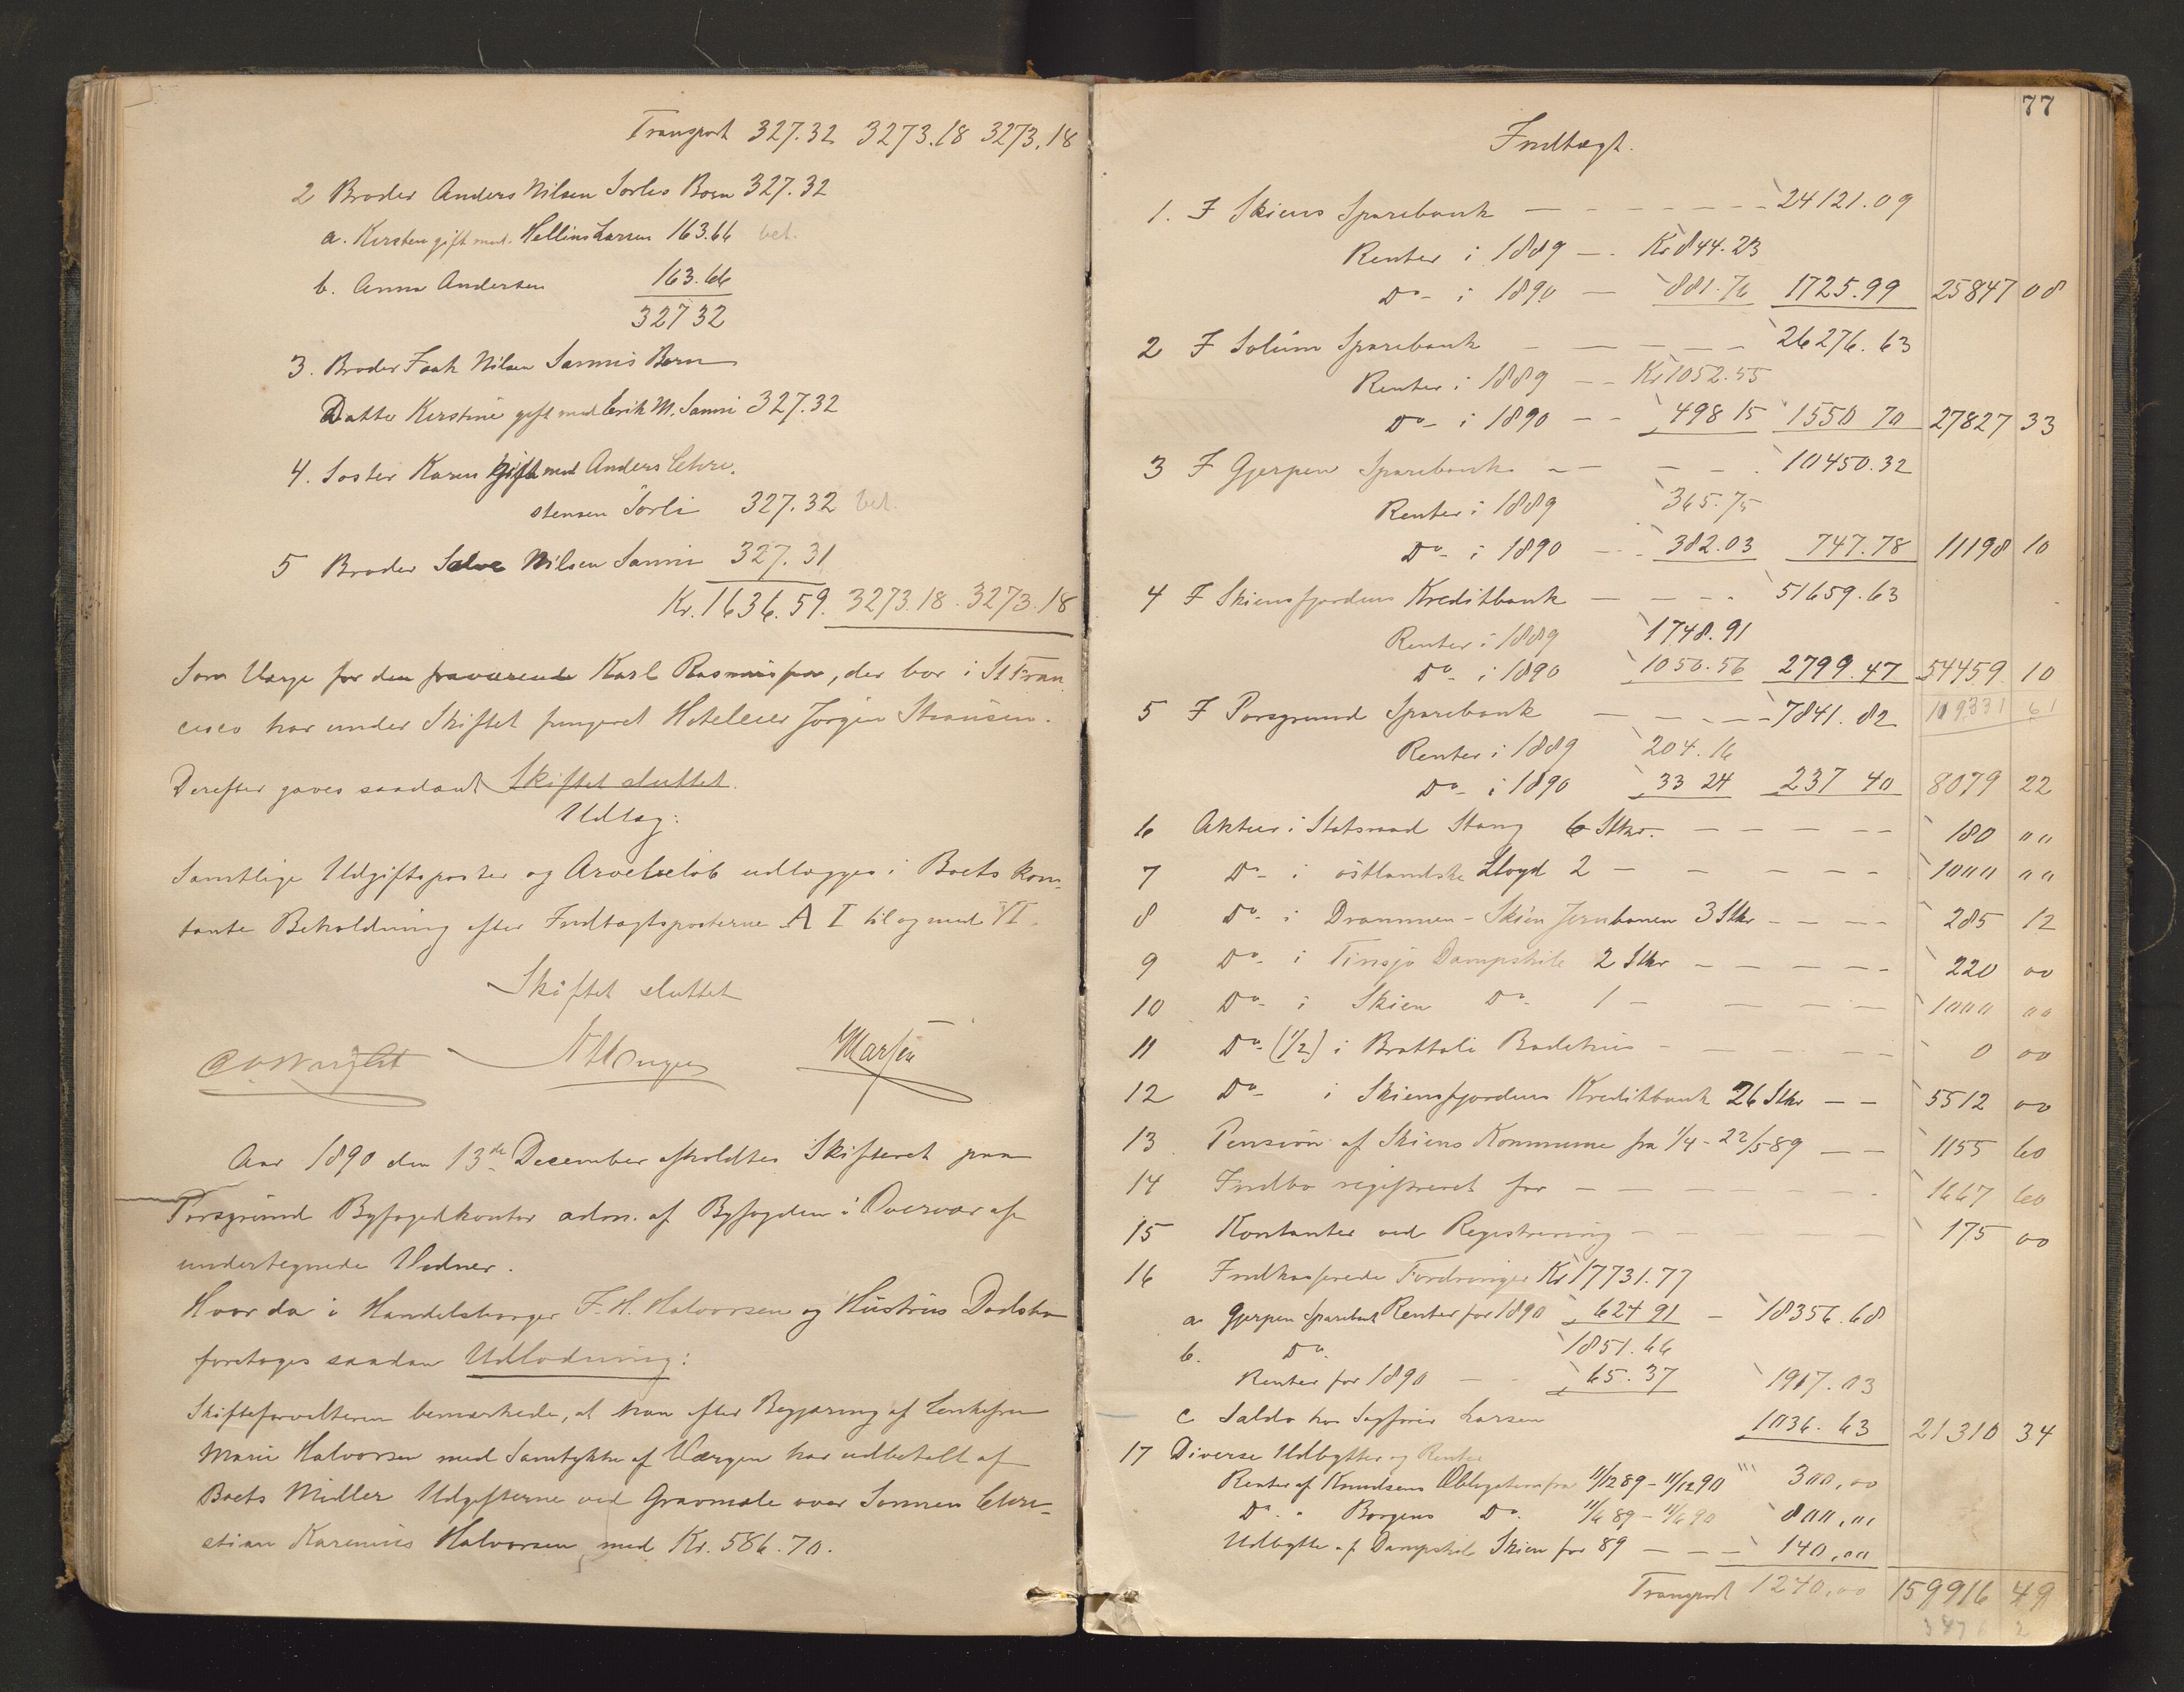 Transport 327.32 3273.18 3273.18
2 Broder Anders Nilsen Sorlis Born 327.32
a. Kirsten gift med Hellins Larsen 163.66 bet.
b. Anna Andersen 163.66
327 32
3. Broder Isak Nilsen Sannis Born
Datter Kirstine gift med Erik M. Sanni 327.32
4. Soster Karen gift med Anders Chri-
stensen Sorli 327.32 bet.
5 Broder Salve Nilsen Sanni 327.31
Kr. 1636.59. 3273.18. 3273.18
Som Værge for den fraværende Karl Rasmussen, der bor i St Fran
cisco har under Skiftet fungeret Hoteleier Jørgen Stousen.
Derefter gaves saadant Skiftet sluttet.
Udlæg:
Samtlige Udgiftsposter og Arvebeløb udlægges i Boets kon-
tante Beholdning efter Indtægtsposterne A I til og med VI
Skiftet sluttet
Aar 1890 den 13de December afholdtes Skifteret paa
Porsgrund Byfogedkontor adm. af Byfogden i Overvær af
undertegnede Vidner.
Hvor da i Handelsborger F. H. Halvorsen og Hustrus Dødsbo
foretoges saadan Udlodning:
Skifteforvalteren bemærkede, at han efter Begjæring af Enkefru
Marie Halvorsen med Samtykke af Værgen har udbetalt af
Boets Midler Udgifterne ved Gravmæle over Sønnen Chri-
stian Karenius Halvorsen med Kr. 586.70.
77
Indtægt.
1. I Skiens Sparebank 24121.09
Renter i 1889 Kr 844.23
Do i 1890 881.76 1725.99 25847 08
2 I Solum Sparebank 26276.63
Renter i 1889 Kr 1052.55
Do i 1890 498 15 1550 70 27827 33
3 I Gjerpen Sparebank 10450.32
Renter i 1889 365.75
Do i 1890 382.03 747.78 11198 10
4 I Skiensfjordens Kreditbank 51659.63
Renter i 1889 1748.91
Do i 1890 1050.56 2799.47 54459 10
5 I Porsgrund Sparebank 7841.82 119331 61
Renter i 1889 204.16
Do i 1890 33 24 237 40 8079 22
6 Aktier i Statsraad Stang 6 Stkr. 180 " "
7 Do i østlandske Lloyd 2 1000 " "
8 Do i Drammen-Skien Jernbanen 3 Stkr 285 12
9 Do i Tinsjø Dampskib 2 Stkr 220 00
10 Do i Skien Do 1 1000 00
11 Do (1/2) i Brattali Badehus 0 00
12 Do i Skiensfjordens Kreditbank 26 Stkr 5512 00
13 Pension af Skiens Kommune fra 1/4 - 22/5 89 1155 60
14 Indbo registreret for 1667 60
15 Kontanter ved Registrering 175 00
16 Indkasserede Fordringer Kr 17731.77
a Gjerpen Sparebank Renter for 1890 624 91 18356.68
b. Do. 1851.66
Renter for 1890 65.37 1917.03
c Saldo hos Sagfører Larsen 1036.63 21310 34
17 Diverse Udbytter og Renter
Renter af Knudsens Obligation fra 11/12 89 - 11/12 90 300,00
Do. " Borgens Do. 11/6 89 - 11/6 90 800,00
Udbytte af Dampskib Skien for 89 140,00
Transport 1240,00 159916 49